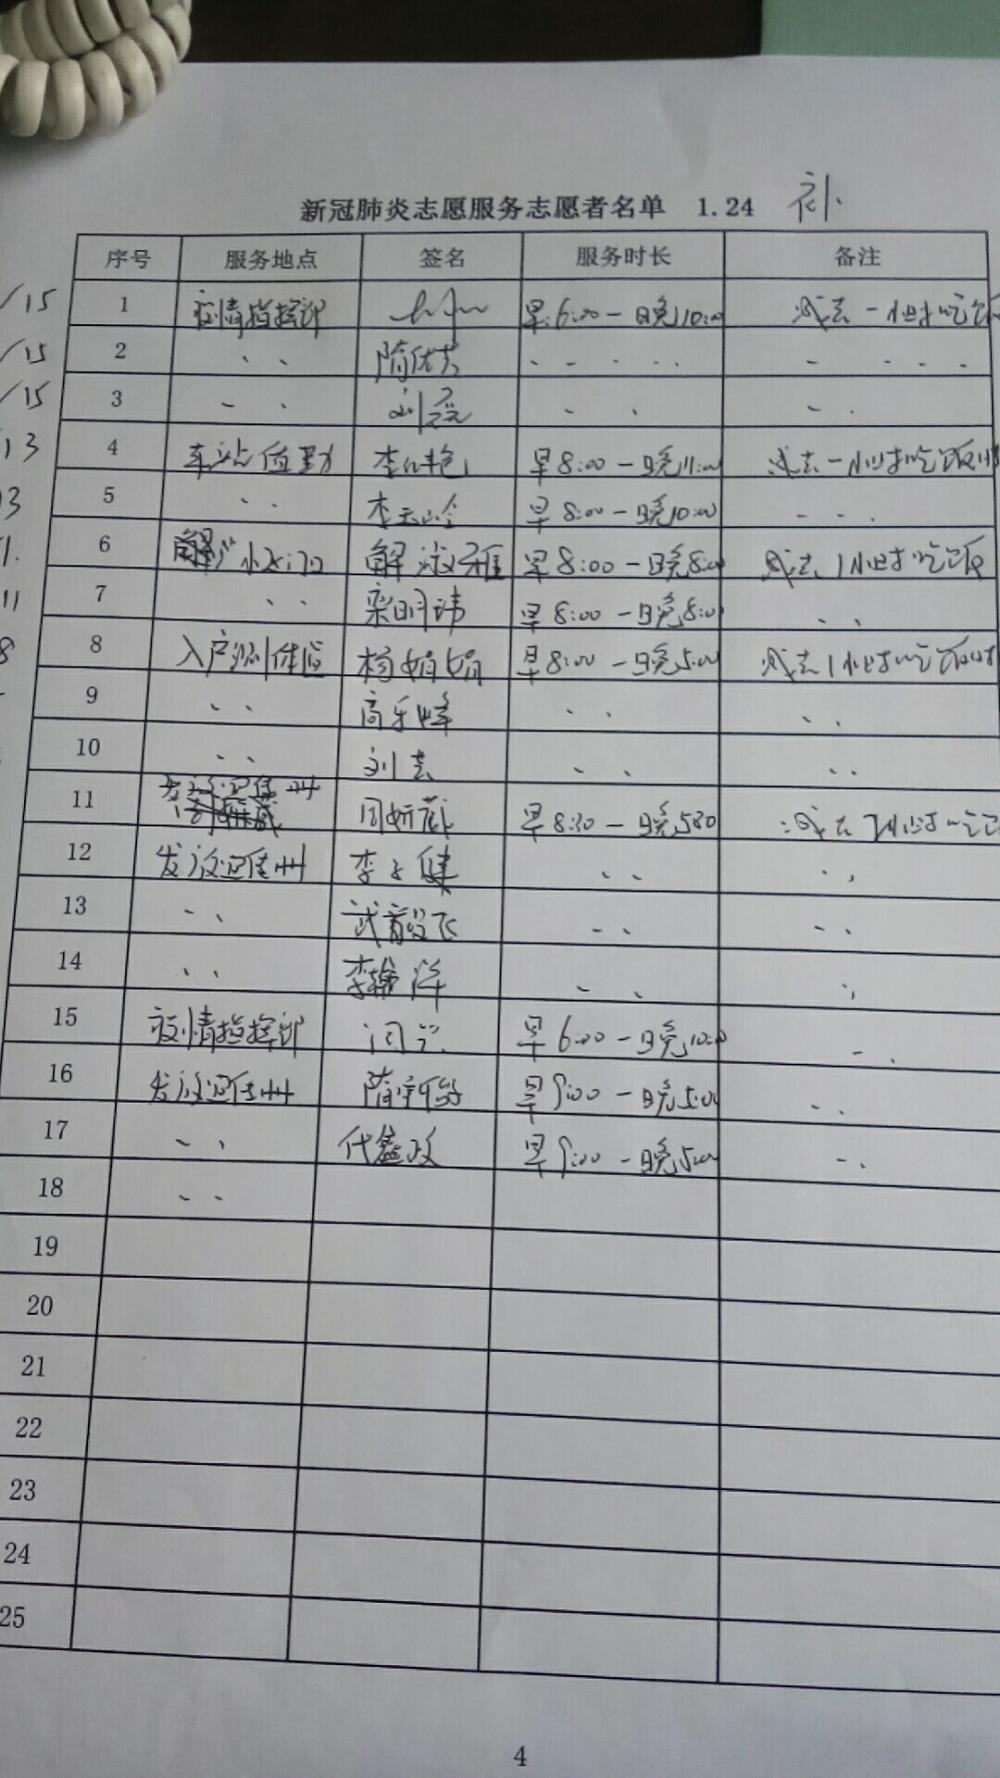 新冠肺炎志愿服务志愿者名单 1.24 补
序号 服务地点 签名 服务时长 备注
/15 1 疫情指挥部 早6:00-晚10:00 减去一小时吃饭
/15 2 〃 隋优芬 〃 〃
/15 3 〃 〃 〃
13 4 车站值勤 早8:00-晚11:00 减去一小时吃饭时
3 5 〃 早8:00-晚10:00 〃
1. 6 解淑雁 早8:00-晚8:00 减去1小时吃饭
11 7 〃 栾明玮 早8:00-晚8:00 〃
8 8 入户测体温 杨娟娟 早8:00-晚5:00 减去1小时吃饭时
9 〃 高乐峰 〃 〃
10 〃 〃 〃
11 周妍葳 早8:30-晚5:30 减去 小时吃
12 发放宣传册 李 健 〃 〃
13 〃 武 飞 〃 〃
14 〃 李瀚洋 〃 〃
15 疫情指挥部 闫兴 早6:00-晚10:00 〃
16 发放宣传册 早9:00-晚5:00 〃
17 〃 代鑫政 早9:00-晚5:00 〃
18 〃
19
20
21
22
23
24
25
4